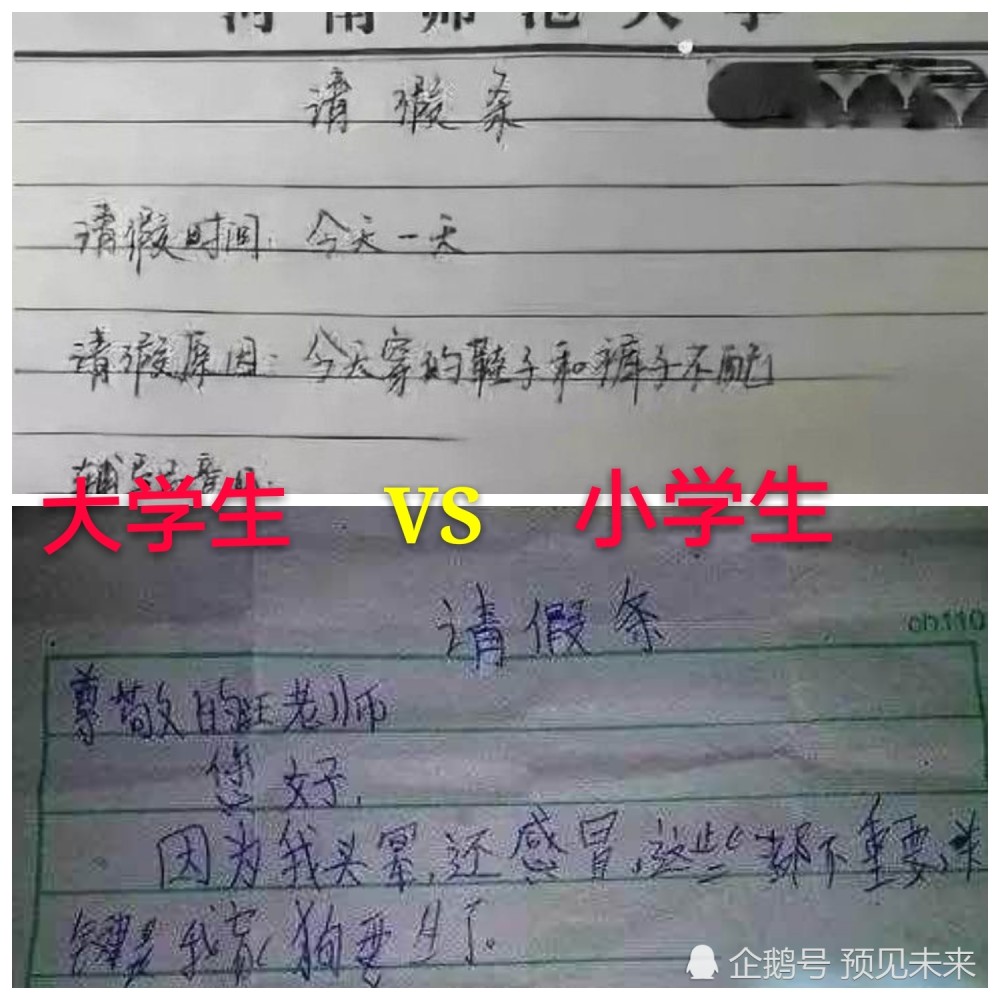 河南师范大学
请假条
请假时间：今天一天
请假原因：今天穿的鞋子和裤子不配
辅导员意见：
大学生 VS 小学生
请假条
尊敬的旺老师
您好，
因为我头晕，还感冒，这些都不重要，关
键是我家狗要生了。
企鹅号 预见未来